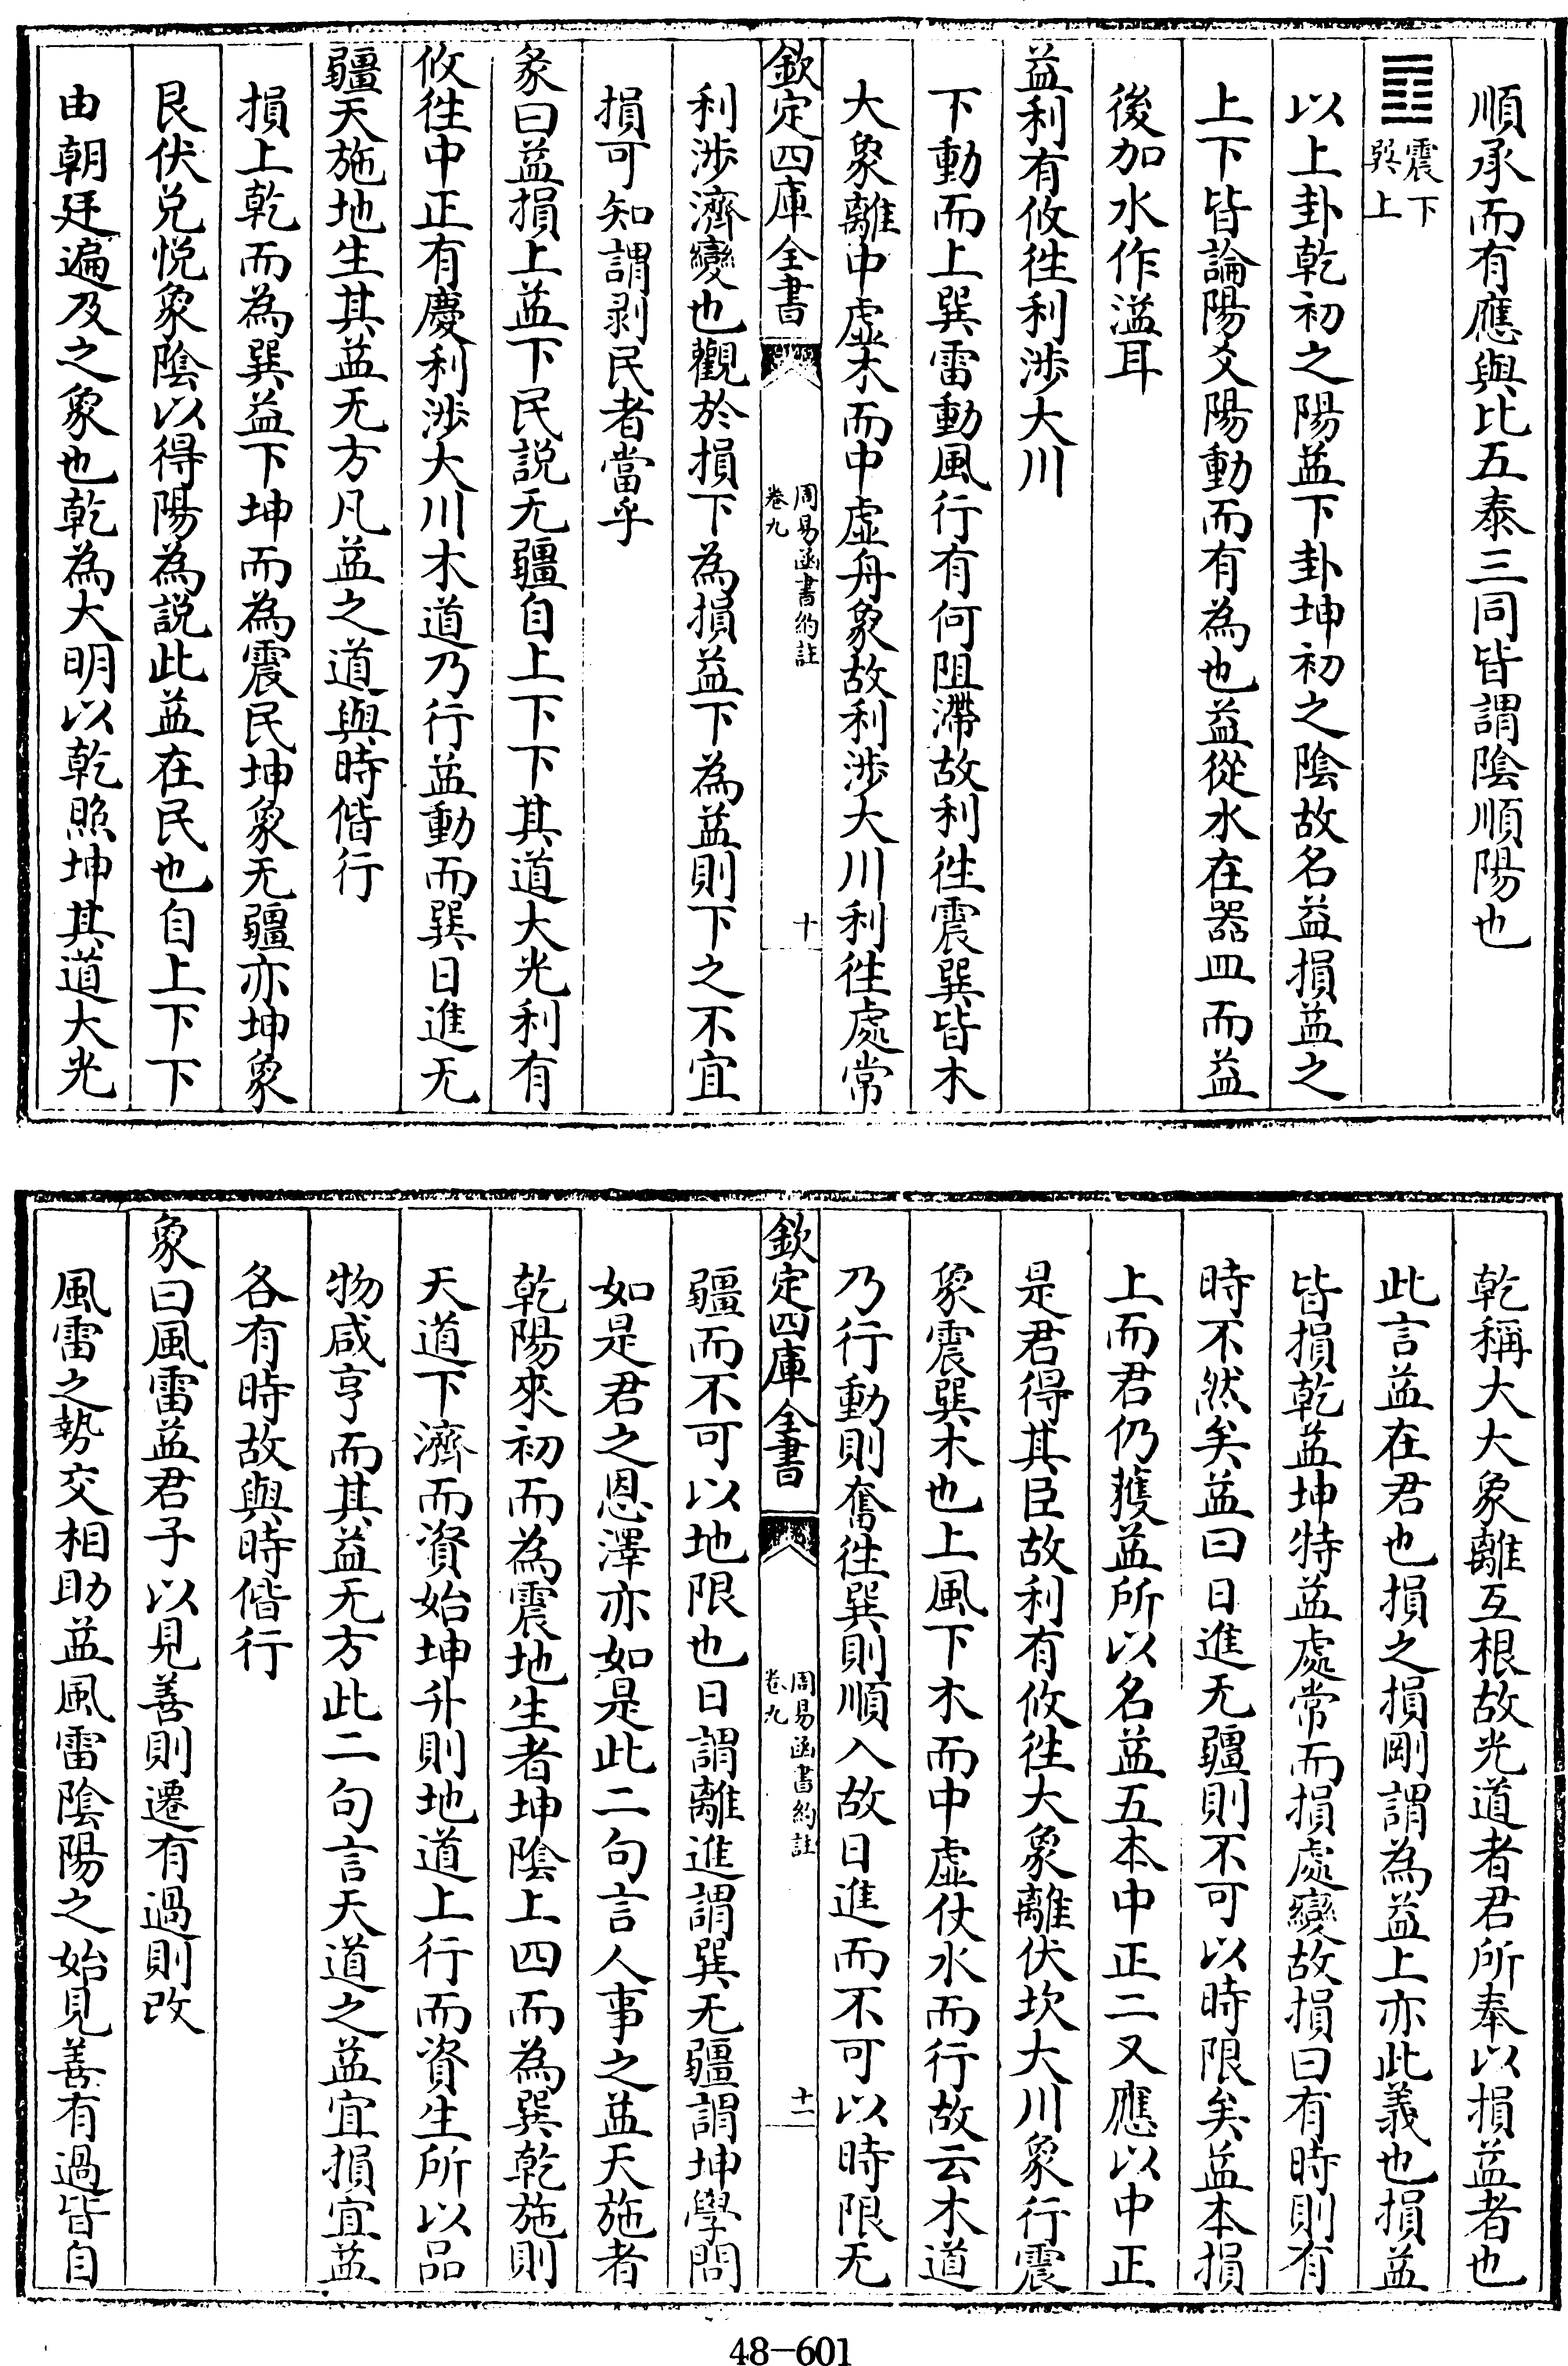 順承而有應與比五泰三同皆謂陰順陽也
䷩震下巽上
以上卦乾初之陽益下卦坤初之陰故名益損益之
上下皆論陽爻陽動而有為也益從水在器皿而益
後加水作溢耳
益利有攸往利涉大川
下動而上巽雷動風行有何阻滯故利往震巽皆木
大象離中虚木而中虚舟象故利涉大川利往處常
欽定四庫全書 周易函書約註 卷九 十
利涉濟變也觀於損下為損益下為益則下之不宜
損可知謂剥民者當乎
彖曰益損上益下民説无疆自上下下其道大光利有
攸往中正有慶利涉大川木道乃行益動而巽日進无
疆天施地生其益无方凡益之道與時偕行
損上乾而為巽益下坤而為震民坤象无疆亦坤象
艮伏兌悦象陰以得陽為説此益在民也自上下下
由朝廷遍及之象也乾為大明以乾照坤其道大光
乾稱大大象離互根故光道者君所奉以損益者也
此言益在君也損之損剛謂為益上亦此義也損益
皆損乾益坤特益處常而損處變故損曰有時則有
時不然矣益曰日進无疆則不可以時限矣益本損
上而君仍獲益所以名益五本中正二又應以中正
是君得其臣故利有攸往大象離伏坎大川象行震
象震巽木也上風下木而中虚仗水而行故云木道
乃行動則奮往巽則順入故日進而不可以時限无
欽定四庫全書 周易函書約註 卷九 十一
疆而不可以地限也日謂離進謂巽无疆謂坤學問
如是君之恩澤亦如是此二句言人事之益天施者
乾陽來初而為震地生者坤陰上四而為巽乾施則
天道下濟而資始坤升則地道上行而資生所以品
物咸亨而其益无方此二句言天道之益宜損宜益
各有時故與時偕行
象曰風雷益君子以見善則遷有過則改
風雷之勢交相助益風雷陰陽之始見善有過皆自
48-601